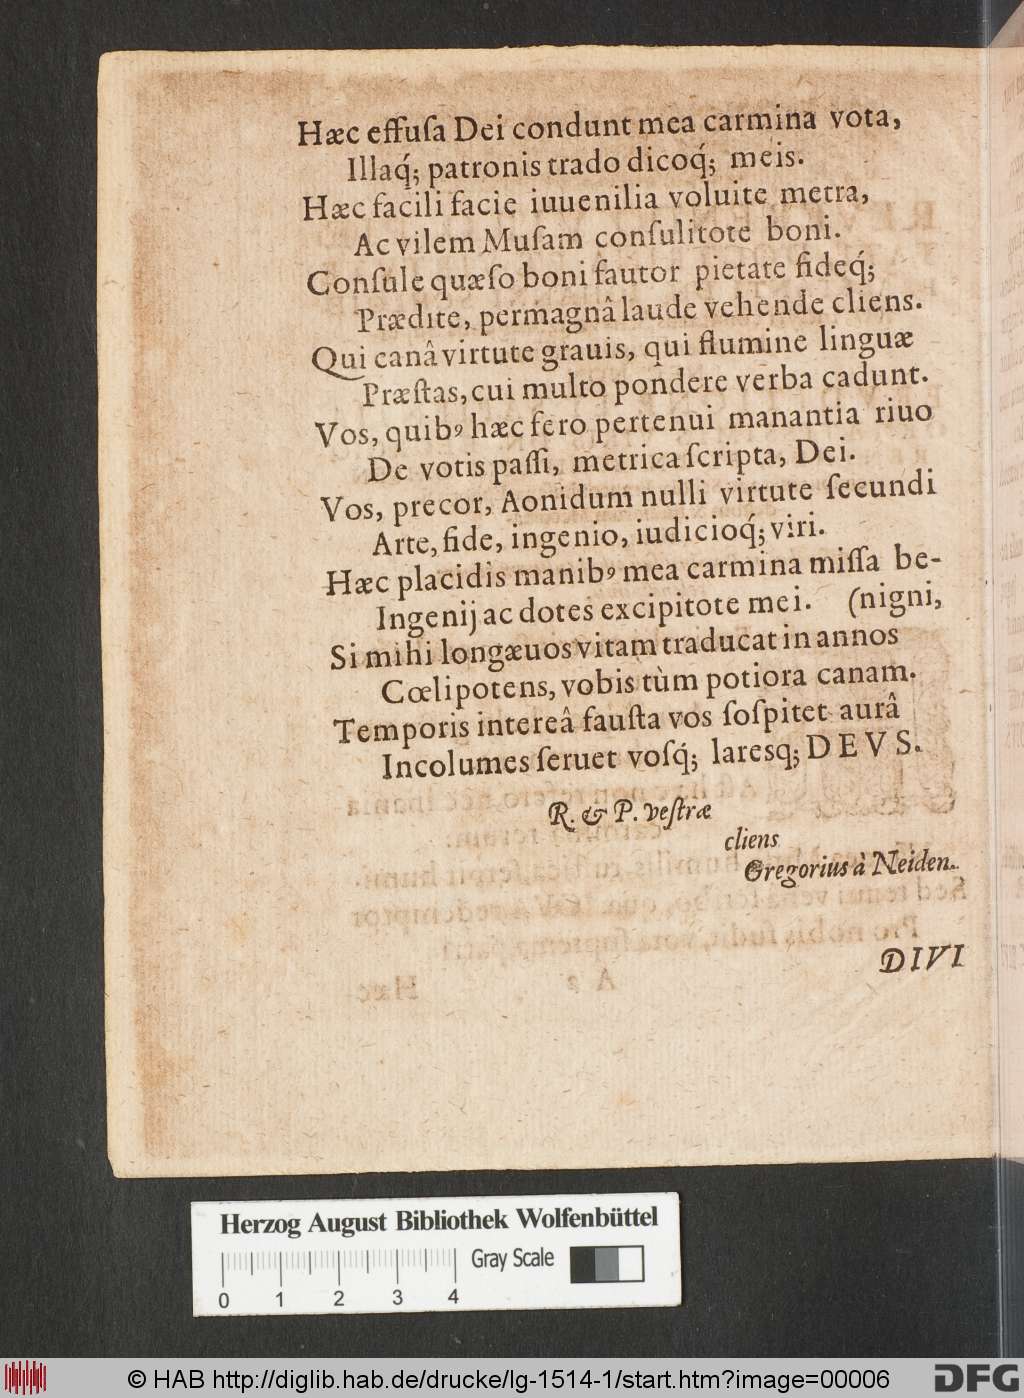 Hæc effuſa Dei condunt mea carmina vota,
Illaq́; patronis trado dicoq́; meis.
Hæc facili facie iuuenilia voluite metra,
Ac vilem Muſam conſulitote boni.
Conſule quæſo boni fautor pietate fideq́;
Prædite, permagnâ laude vehende cliens.
Qui canâ virtute grauis, qui flumine linguæ
Præſtas, cui multo pondere verba cadunt.
Vos, quibꝰ hæc fero pertenui manantia riuo
De votis paſſi, metrica ſcripta, Dei.
Vos, precor, Aonidum nulli virtute ſecundi
Arte, fide, ingenio, iudicioq́; viri.
Hæc placidis manibꝰ mea carmina miſſa be-
Ingenij ac dotes excipitote mei. (nigni,
Si mihi longæuos vitam traducat in annos
Cœlipotens, vobis tùm potiora canam.
Temporis intereâ fauſta vos ſoſpitet aurâ
Incolumes ſeruet voſq́; laresq; DEVS.
R. & P. veſtræ
cliens
Gregorius à Neiden.
DIVI
Herzog August Bibliothek Wolfenbüttel
Gray Scale
0 1 2 3 4
© HAB http://diglib.hab.de/drucke/lg-1514-1/start.htm?image=00006
DFG